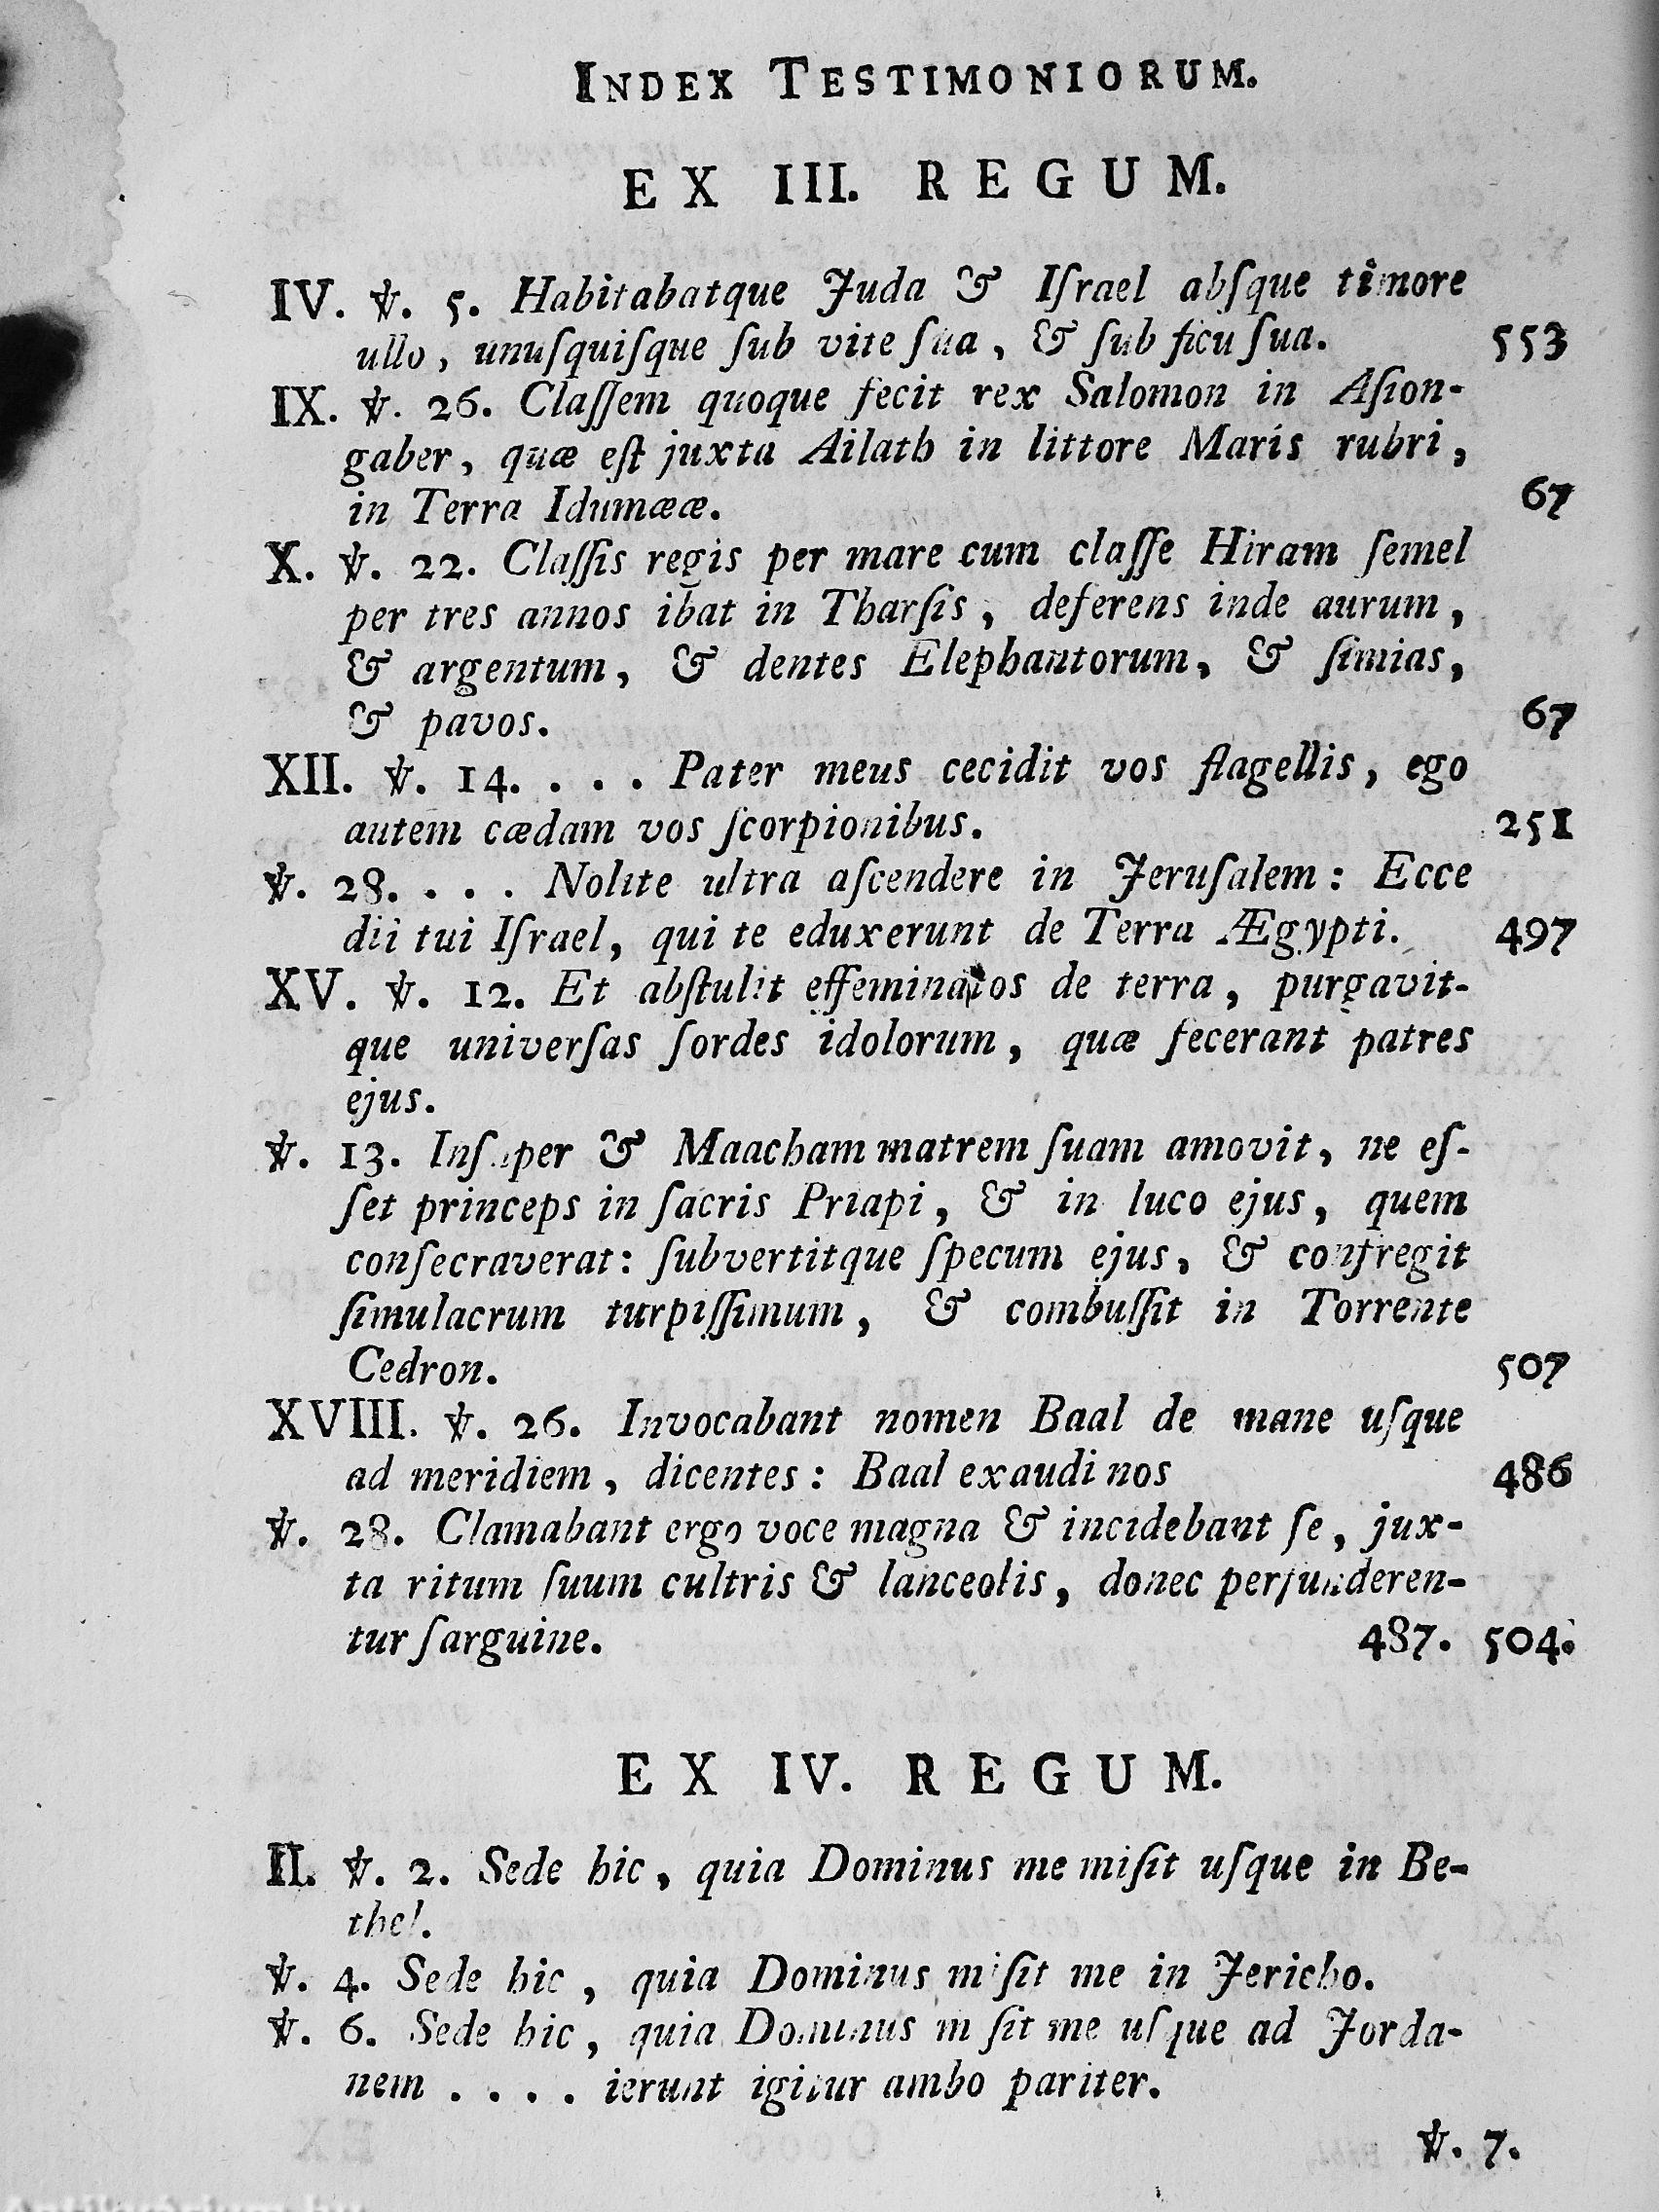 INDEX TESTIMONIORUM.
EX III. REGUM.
IV. ℣. 5. Habitabatque Juda & Iſrael abſque timore
ullo, unuſquiſque ſub vite ſua, & ſub ficu ſua. 553
IX. ℣. 26. Claſſem quoque fecit rex Salomon in Aſion-
gaber, quæ eſt juxta Ailath in littore Maris rubri,
in Terra Idumææ. 67
X. ℣. 22. Claſſis regis per mare cum claſſe Hiram ſemel
per tres annos ibat in Tharſis, deferens inde aurum,
& argentum, & dentes Elephantorum, & ſimias,
& pavos. 67
XII. ℣. 14. . . . Pater meus cecidit vos flagellis, ego
autem cædam vos ſcorpionibus. 251
℣. 28. . . . Nolite ultra aſcendere in Jeruſalem: Ecce
dii tui Iſrael, qui te eduxerunt de Terra Ægypti. 497
XV. ℣. 12. Et abſtulit effeminatos de terra, purgavit-
que univerſas ſordes idolorum, quæ fecerant patres
ejus.
℣. 13. Inſuper & Maacham matrem ſuam amovit, ne eſ-
ſet princeps in ſacris Priapi, & in luco ejus, quem
conſecraverat: ſubvertitque ſpecum ejus, & confregit
ſimulacrum turpiſſimum, & combuſſit in Torrente
Cedron. 507
XVIII. ℣. 26. Invocabant nomen Baal de mane uſque
ad meridiem, dicentes: Baal exaudi nos 486
℣. 28. Clamabant ergo voce magna & incidebant ſe, jux-
ta ritum ſuum cultris & lanceolis, donec perfunderen-
tur ſarguine. 487. 504.
EX IV. REGUM.
II. ℣. 2. Sede hic, quia Dominus me miſit uſque in Be-
thel.
℣. 4. Sede hic, quia Dominus miſit me in Jericho.
℣. 6. Sede hic, quia Dominus miſit me uſque ad Jorda-
nem . . . . ierunt igitur ambo pariter.
℣. 7.